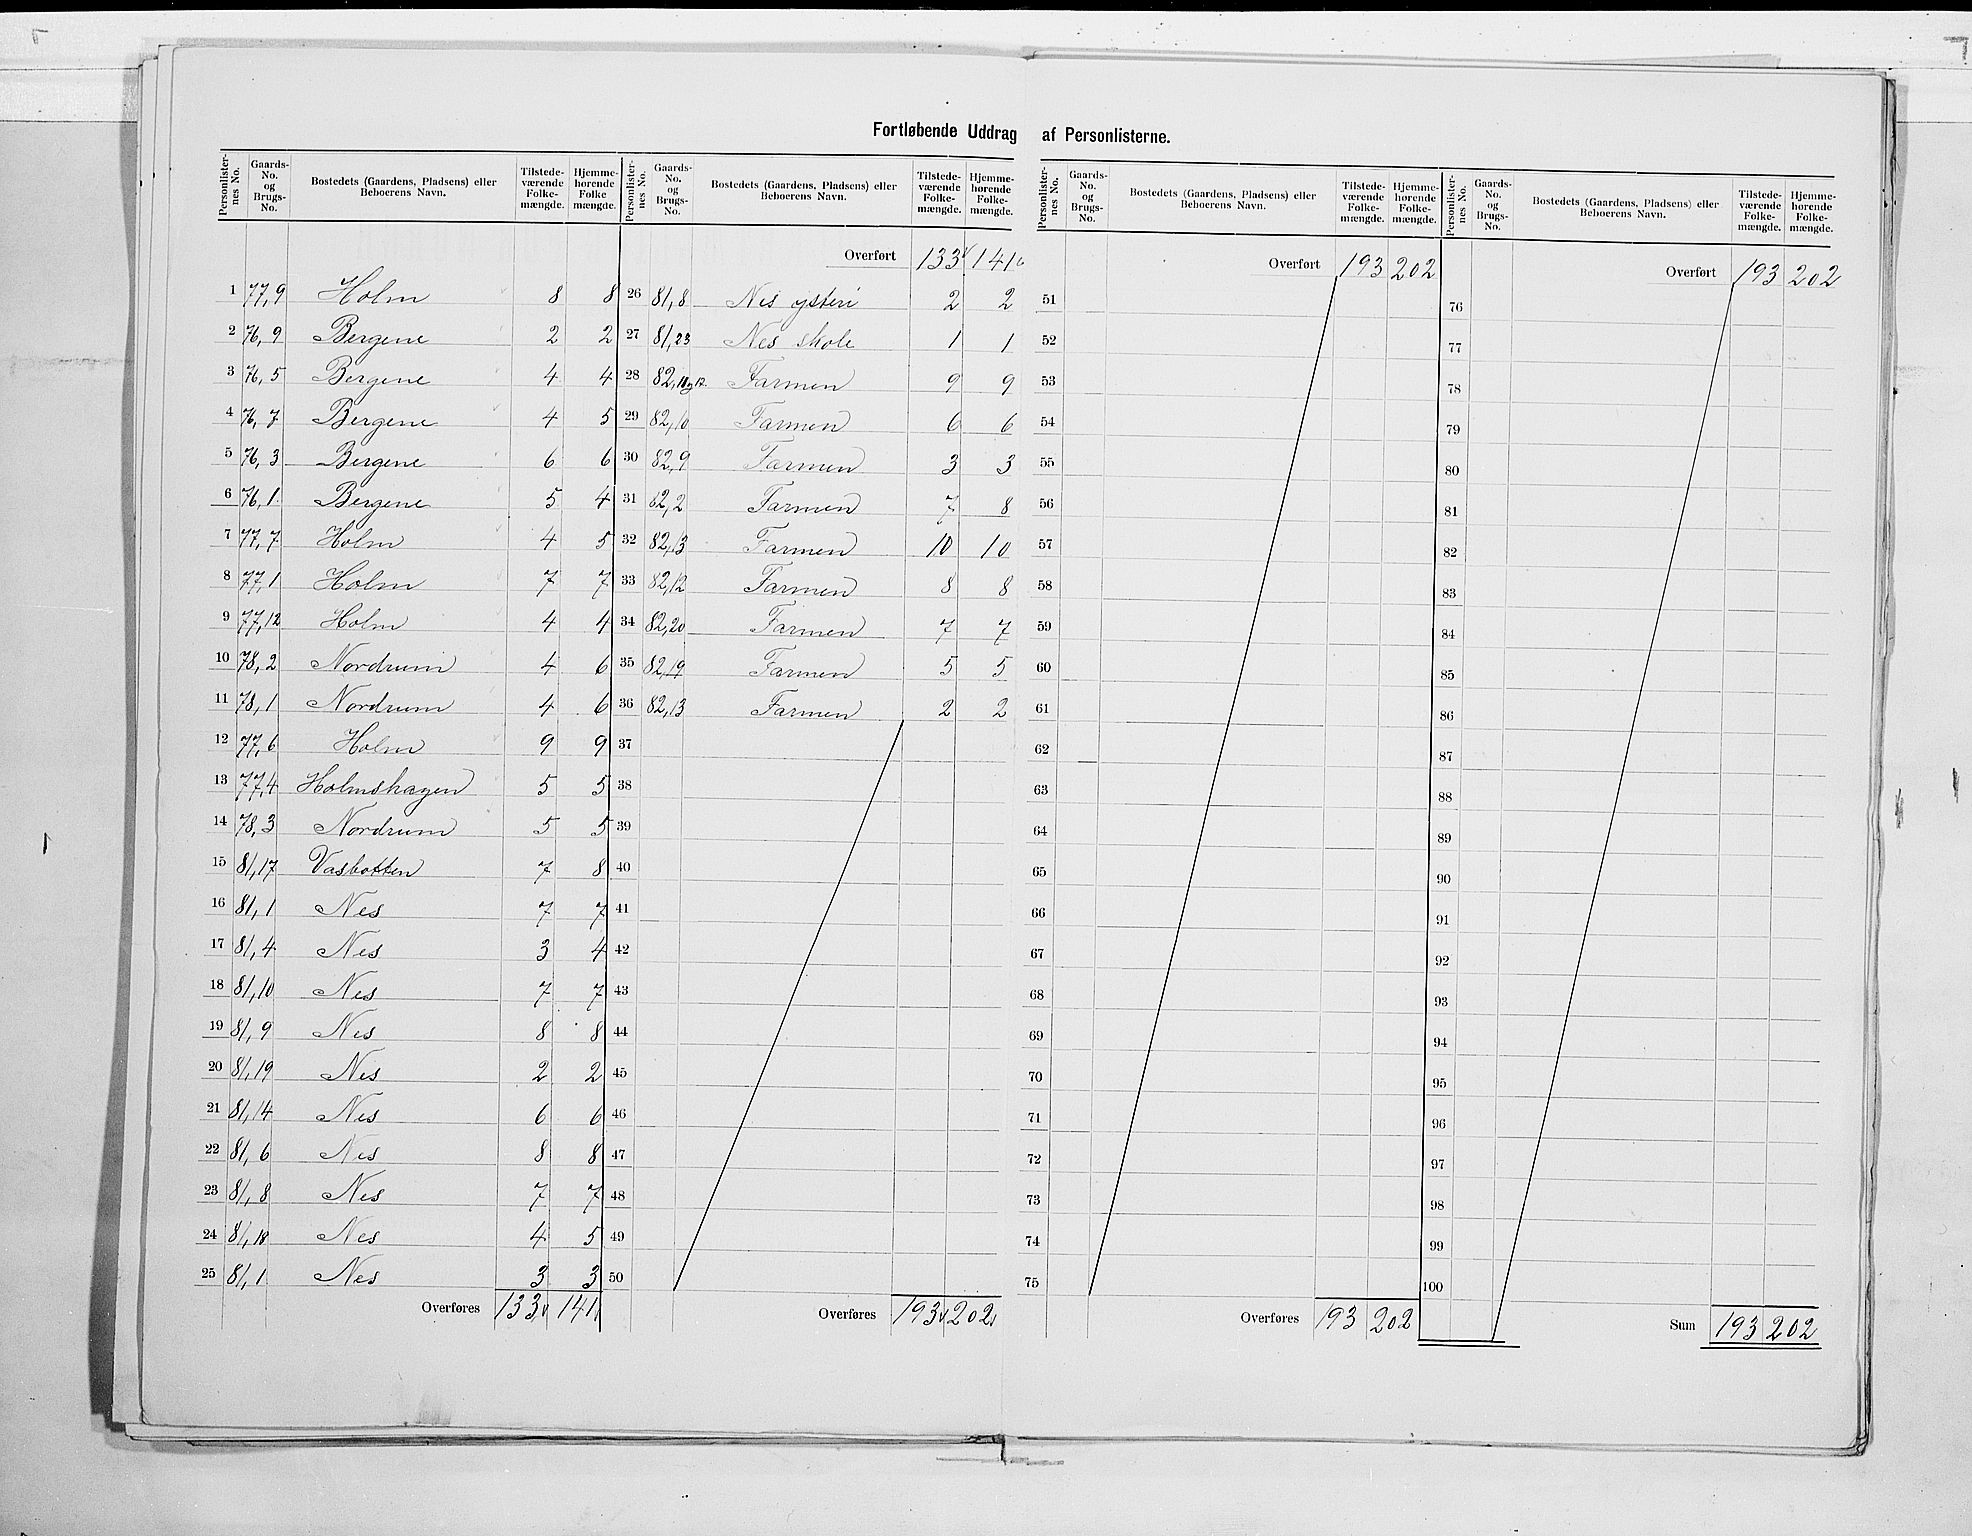 Fortløbende Uddrag af Personlisterne.
Personlisternes No. | Gaards-No. og Brugs-No. | Bostedets (Gaardens, Pladsens) eller Beboerens Navn. | Tilstedeværende Folkemængde. | Hjemmehørende Folkemængde.
1 77,9 Holm 8 8
2 76,9 Bergene 2 2
3 76,5 Bergene 4 4
4 76,7 Bergene 4 5
5 76,3 Bergene 6 6
6 76,1 Bergene 5 4
7 77,7 Holm 4 5
8 77,1 Holm 7 7
9 77,12 Holm 4 4
10 78,2 Nordrum 4 6
11 78,1 Nordrum 4 6
12 77,6 Holm 9 9
13 77,4 Holmshagen 5 5
14 78,3 Nordrum 5 5
15 81,17 Vasbotten 7 8
16 81,1 Nes 7 7
17 81,4 Nes 3 4
18 81,10 Nes 7 7
19 81,9 Nes 8 8
20 81,19 Nes 2 2
21 81,14 Nes 6 6
22 81,6 Nes 8 8
23 81,8 Nes 7 7
24 81,18 Nes 4 5
25 81,1 Nes 3 3
Overføres 133 141
Personlisternes No. | Gaards-No. og Brugs-No. | Bostedets (Gaardens, Pladsens) eller Beboerens Navn. | Tilstedeværende Folkemængde. | Hjemmehørende Folkemængde.
Overført 133 141
26 81,8 Nes ysteri 2 2
27 81,23 Nes skole 1 1
28 82, Farmen 9 9
29 82,10 Farmen 6 6
30 82,9 Farmen 3 3
31 82,2 Farmen 7 8
32 82,13 Farmen 10 10
33 82,12 Farmen 8 8
34 82,20 Farmen 7 7
35 82,19 Farmen 5 5
36 82,13 Farmen 2 2
37
38
39
40
41
42
43
44
45
46
47
48
49
50
Overføres 193 202
Personlisternes No. | Gaards-No. og Brugs-No. | Bostedets (Gaardens, Pladsens) eller Beboerens Navn. | Tilstedeværende Folkemængde. | Hjemmehørende Folkemængde.
Overført 193 202
51
52
53
54
55
56
57
58
59
60
61
62
63
64
65
66
67
68
69
70
71
72
73
74
75
Overføres 193 202
Personlisternes No. | Gaards-No. og Brugs-No. | Bostedets (Gaardens, Pladsens) eller Beboerens Navn. | Tilstedeværende Folkemængde. | Hjemmehørende Folkemængde.
Overført 193 202
76
77
78
79
80
81
82
83
84
85
86
87
88
89
90
91
92
93
94
95
96
97
98
99
100
Sum 193 202